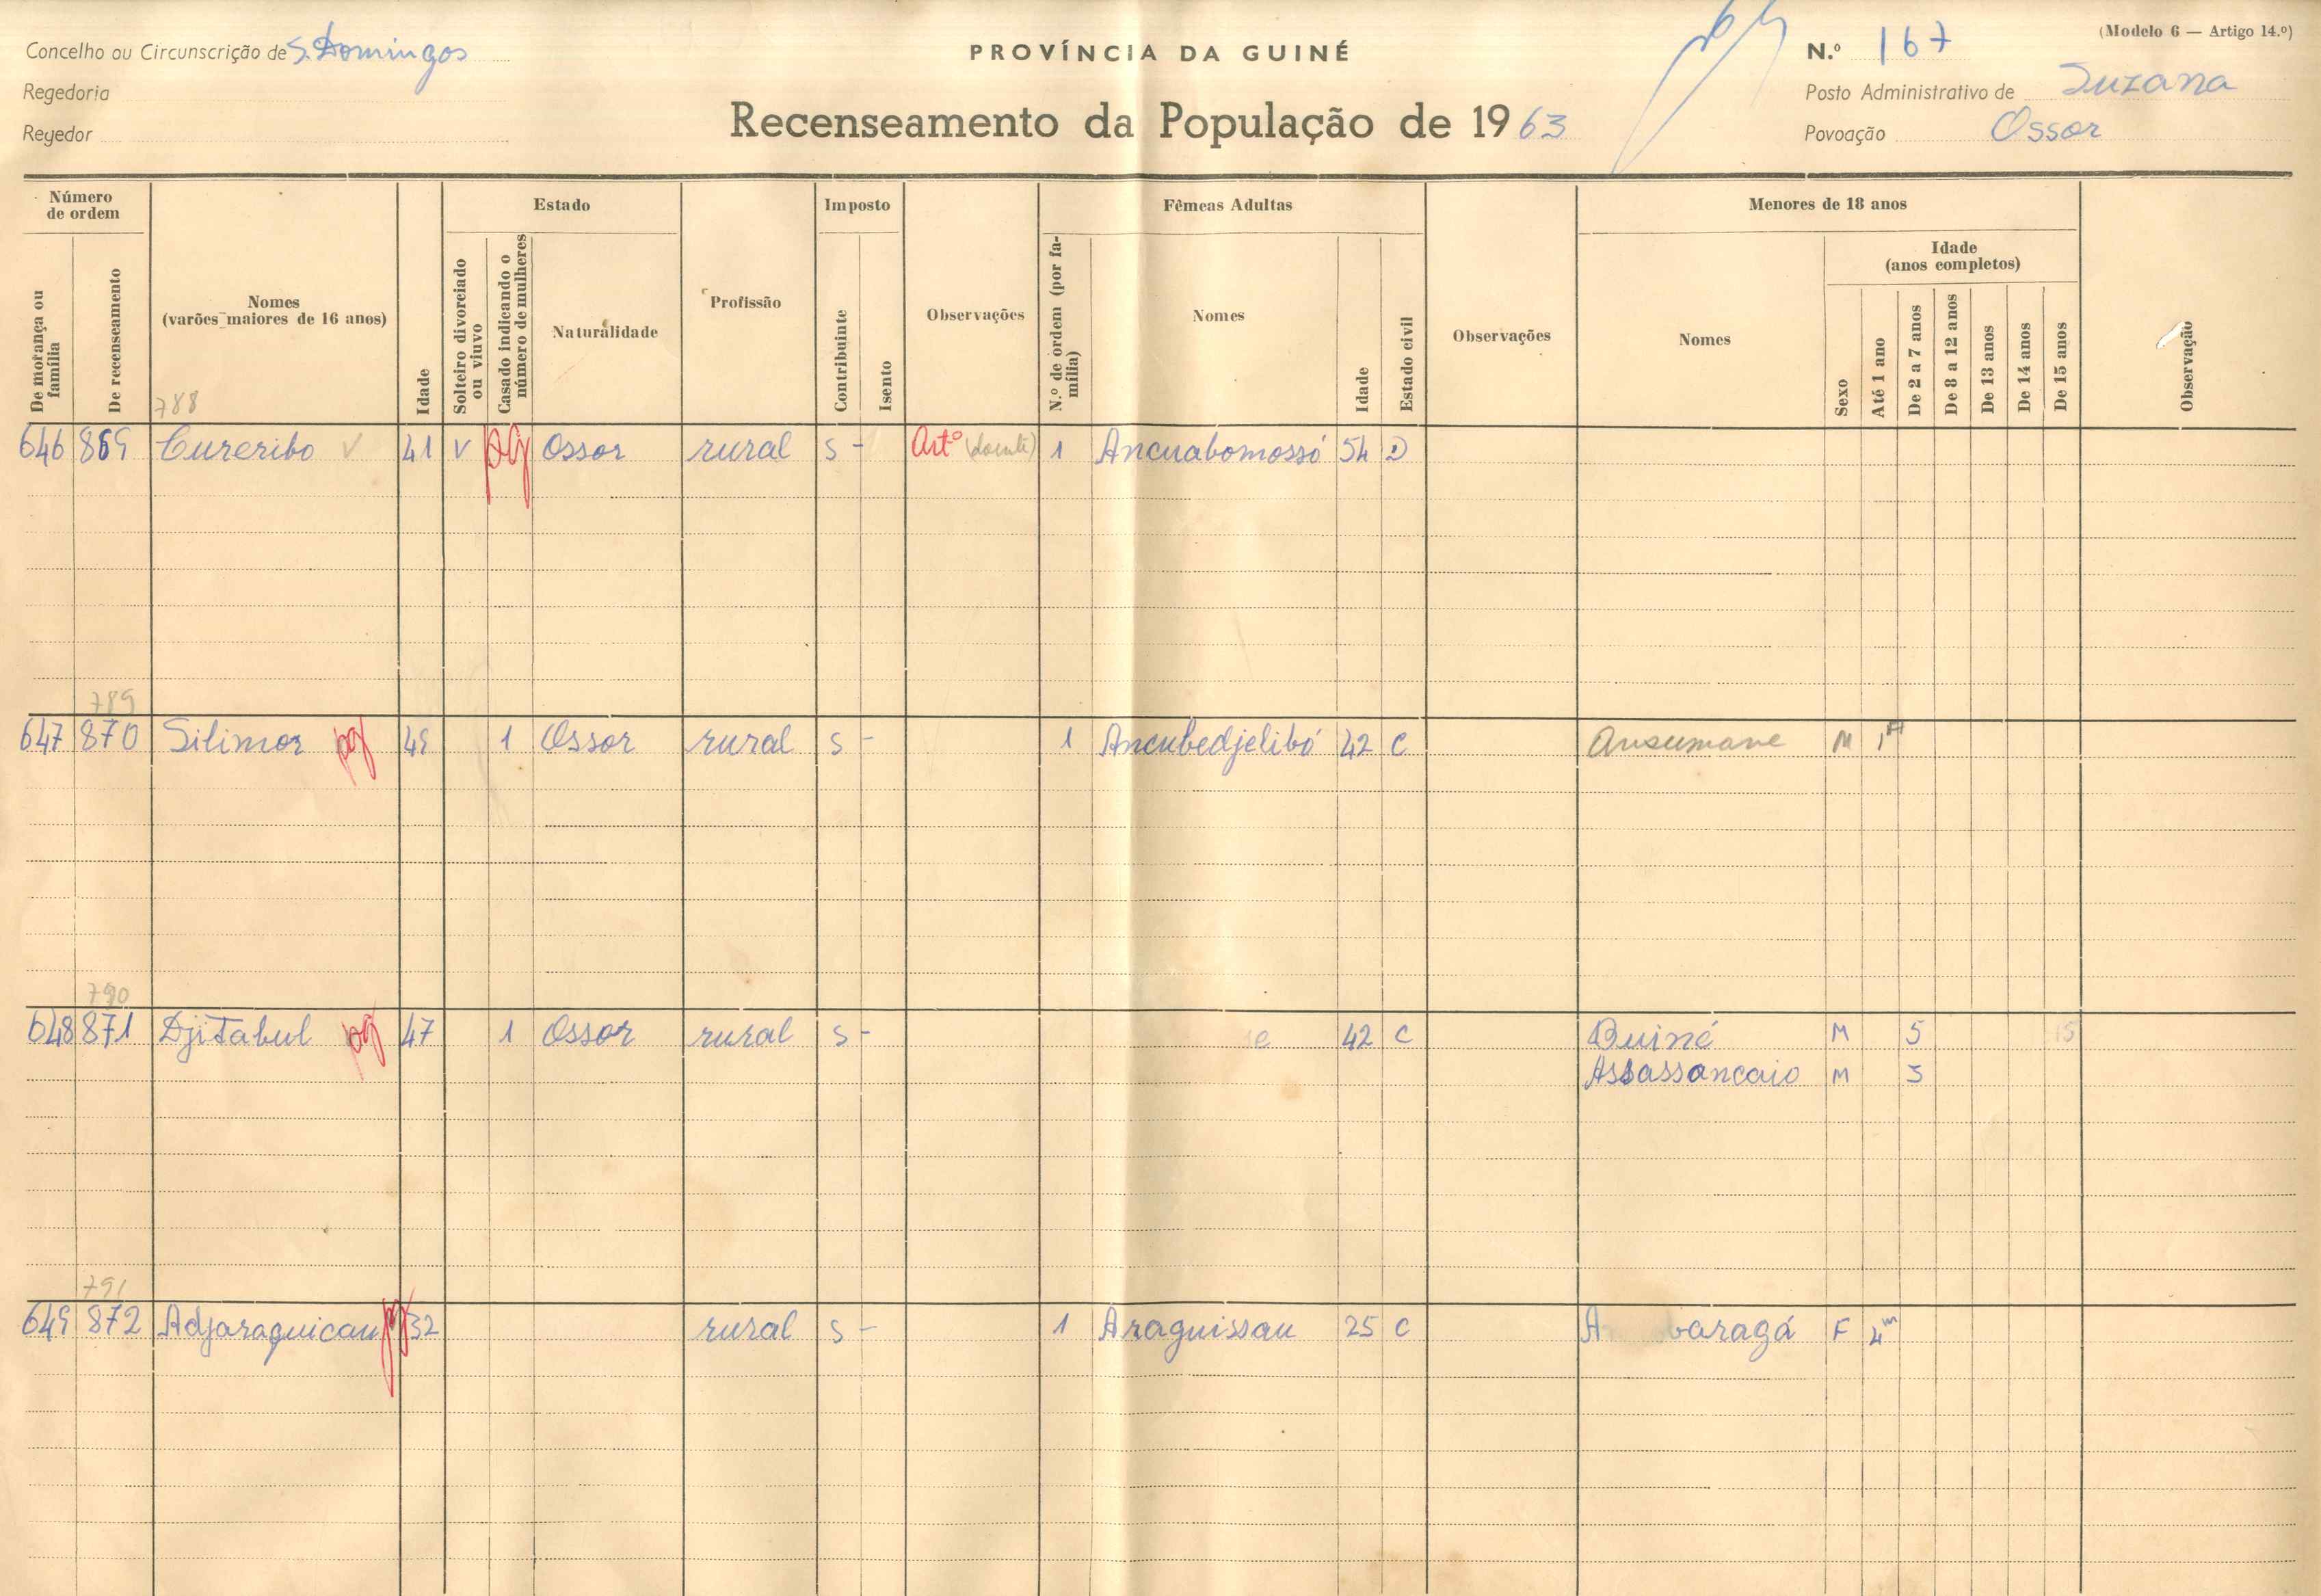 (Modelo 6 — Artigo 14.º)
Concelho ou Circunscrição de S. Domingos
PROVÍNCIA DA GUINÉ
N.º 167
Regedoria
Posto Administrativo de Suzana
Regedor
Recenseamento da População de 1963
Povoação Ossor
Número de ordem
Estado
Imposto
Fêmeas Adultas
Menores de 18 anos
Idade (anos completos)
De morança ou família
De recenseamento
Nomes (varões maiores de 16 anos)
Idade
Solteiro divorciado ou viuvo
Casado indicando o número de mulheres
Naturalidade
Profissão
Contribuinte
Isento
Observações
N.º de ordem (por família)
Nomes
Idade
Estado civil
Observações
Nomes
Sexo
Até 1 ano
De 2 a 7 anos
De 8 a 12 anos
De 13 anos
De 14 anos
De 15 anos
Observação
788
646 869 Cureribo 41 V pg Ossor rural S - Artº (doente) 1 Ancuabomossó 54 D
789
647 870 Silimor pg 49 1 Ossor rural S - 1 Ancubedjelibó 42 C Ansumane M 1A
790
648 871 Djitabul pg 47 1 Ossor rural S - e 42 C Buiné M 5 15
Assassancaio M 3
791
649 872 Adjaraguicau pg 32 rural S - 1 Araguissau 25 C A baragá F 4m